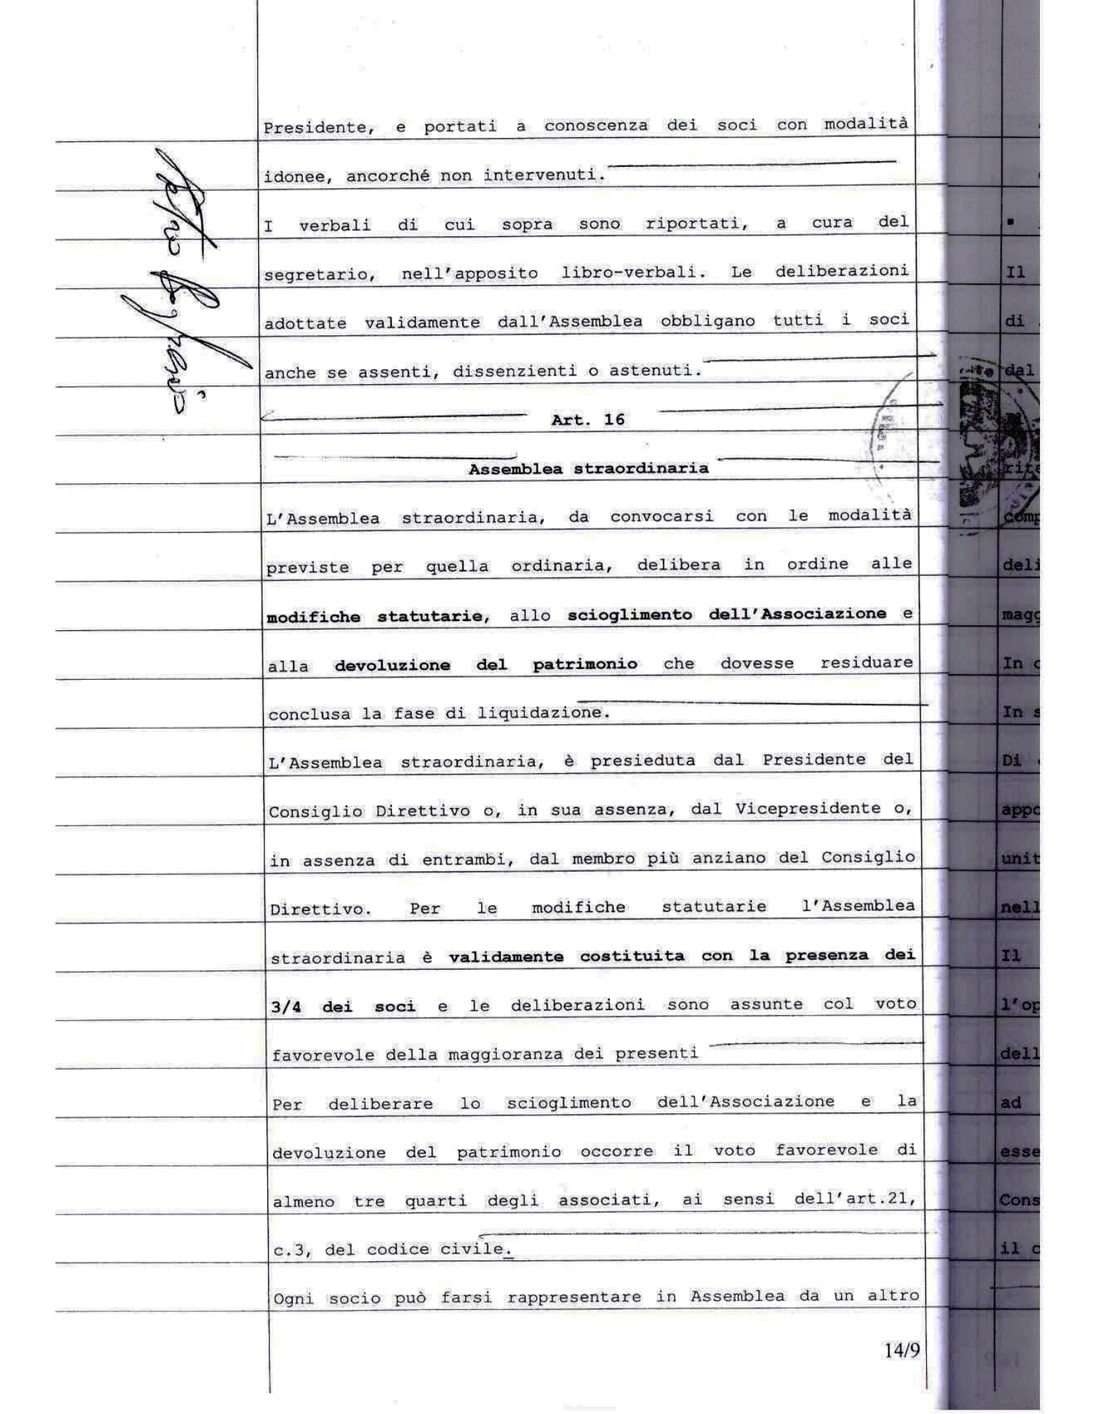 Presidente, e portati a conoscenza dei soci con modalità
idonee, ancorché non intervenuti.
I verbali di cui sopra sono riportati, a cura del
segretario, nell'apposito libro-verbali. Le deliberazioni
adottate validamente dall'Assemblea obbligano tutti i soci
anche se assenti, dissenzienti o astenuti.
Art. 16
Assemblea straordinaria
L'Assemblea straordinaria, da convocarsi con le modalità
previste per quella ordinaria, delibera in ordine alle
modifiche statutarie, allo scioglimento dell'Associazione e
alla devoluzione del patrimonio che dovesse residuare
conclusa la fase di liquidazione.
L'Assemblea straordinaria, è presieduta dal Presidente del
Consiglio Direttivo o, in sua assenza, dal Vicepresidente o,
in assenza di entrambi, dal membro più anziano del Consiglio
Direttivo. Per le modifiche statutarie l'Assemblea
straordinaria è validamente costituita con la presenza dei
3/4 dei soci e le deliberazioni sono assunte col voto
favorevole della maggioranza dei presenti
Per deliberare lo scioglimento dell'Associazione e la
devoluzione del patrimonio occorre il voto favorevole di
almeno tre quarti degli associati, ai sensi dell'art.21,
c.3, del codice civile.
Ogni socio può farsi rappresentare in Assemblea da un altro
14/9
Il
di
dal
rite
comp
deli
magg
In c
In s
Di
appo
unit
nell
Il
l'op
dell
ad
esse
Cons
il c